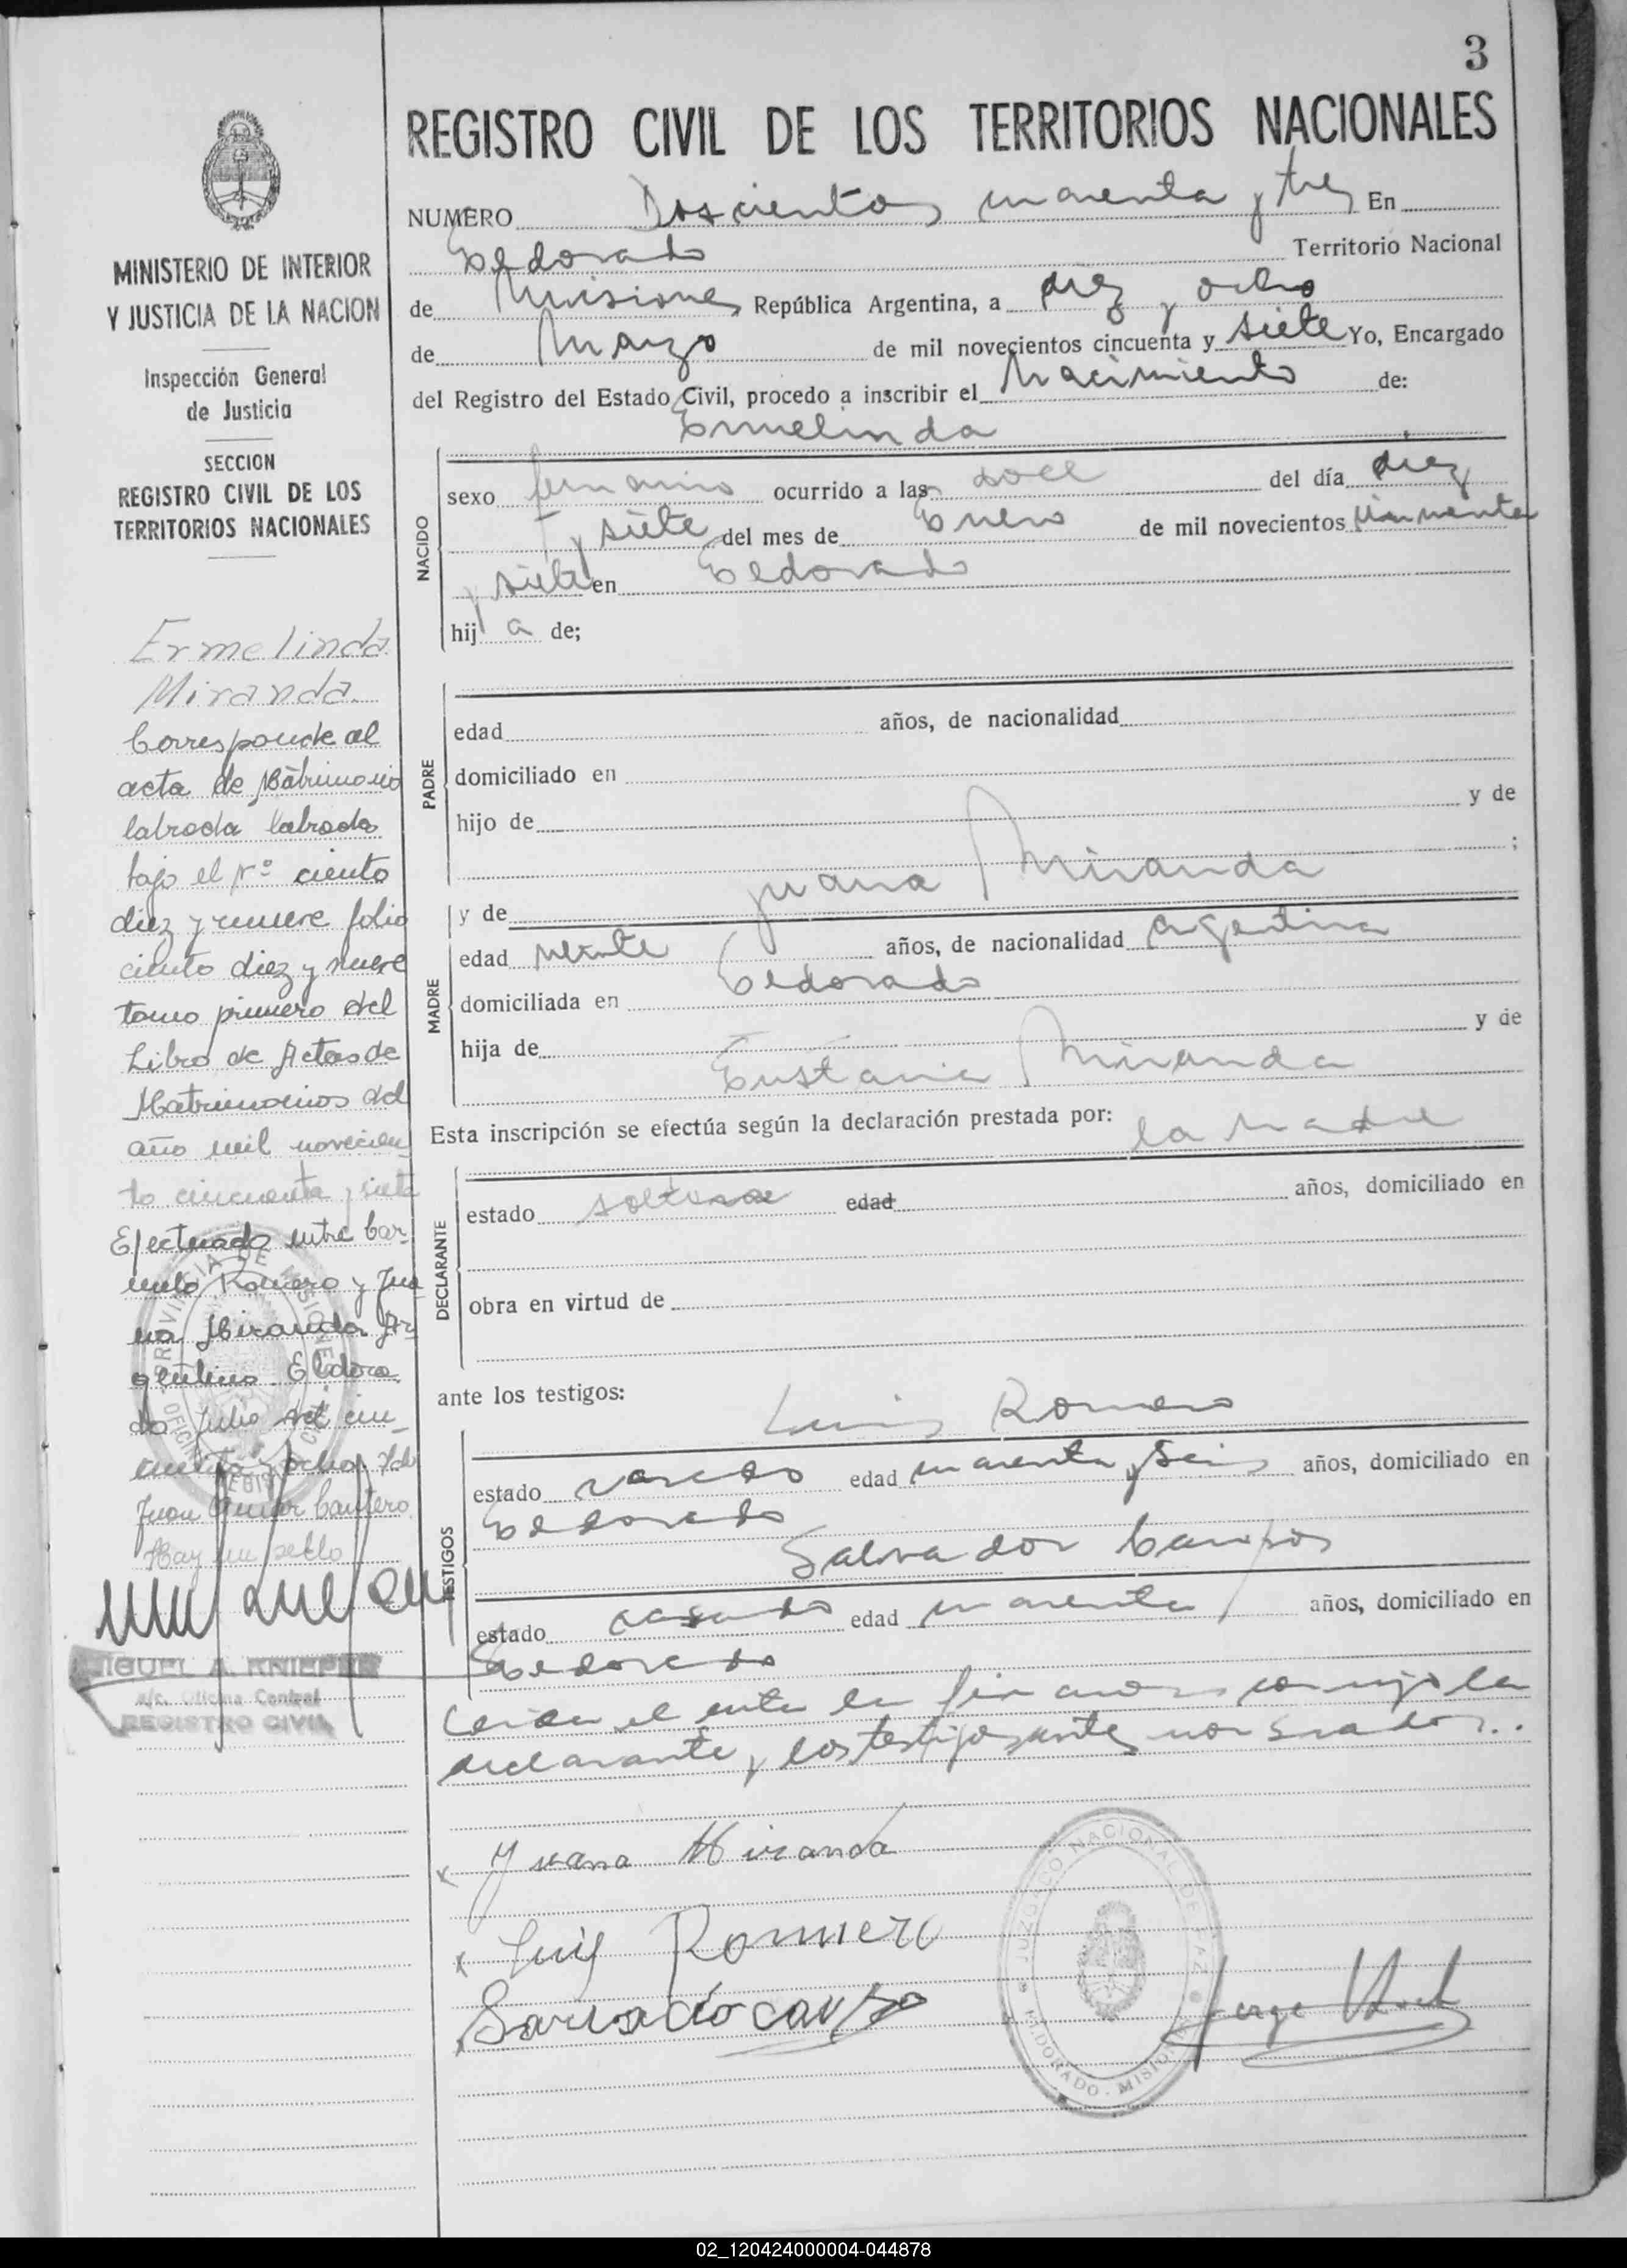 3
REGISTRO CIVIL DE LOS TERRITORIOS NACIONALES
MINISTERIO DE INTERIOR
Y JUSTICIA DE LA NACION
Inspección General
de Justicia
SECCION
REGISTRO CIVIL DE LOS
TERRITORIOS NACIONALES
Ermelinda
Miranda
Corresponde al
acta de Matrimonio
labrada labrada
bajo el Nº ciento
diez y nueve folio
ciento diez y nueve
tomo primero del
Libro de Actas de
Matrimonios del
año mil novecien
to cincuenta y siete
Efectuado entre Car-
melo Romero y Jua
na Miranda Ar
gentinos. Eldora
do Julio del cin-
cuenta y ocho Fdo
Juan Cantero
Hay un sello
MIGUEL A. KNIEPER
a/c. Oficina Central
REGISTRO CIVIL
NUMERO Doscientos cuarenta y tres En
Eldorado Territorio Nacional
de Misiones República Argentina, a diez y ocho
de Marzo de mil novecientos cincuenta y siete Yo, Encargado
del Registro del Estado Civil, procedo a inscribir el Nacimiento de:
Ermelinda
NACIDO
sexo femenino ocurrido a las doce del día diez
y siete del mes de Enero de mil novecientos cincuenta
y siete en Eldorado
hija de;
PADRE
edad años, de nacionalidad
domiciliado en
hijo de y de
;
MADRE
y de Juana Miranda
edad veinte años, de nacionalidad argentina
domiciliada en Eldorado
hija de y de
Miranda
Esta inscripción se efectúa según la declaración prestada por: la madre
DECLARANTE
estado soltera edad años, domiciliado en
obra en virtud de
ante los testigos: Luis Romero
TESTIGOS
estado casado edad cuarenta y seis años, domiciliado en
Eldorado
Salvador Campos
estado casado edad cuarenta años, domiciliado en
Eldorado
Leida el acta la firman conmigo la
declarante y los testigos antes nombrados..
x Juana Miranda
x Luis Romero
x
JUZGADO NACIONAL DE PAZ
ELDORADO - MISIONES
Jorge
PROVINCIA DE MISIONES
02_120424000004-044878